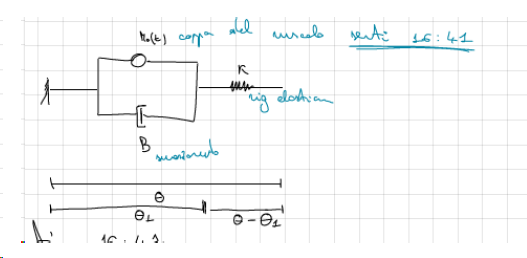 M₀(t) coppia del muscolo senti 16:41
K
rig elastica
B
smorzamento
θ
θ1
θ - θ1